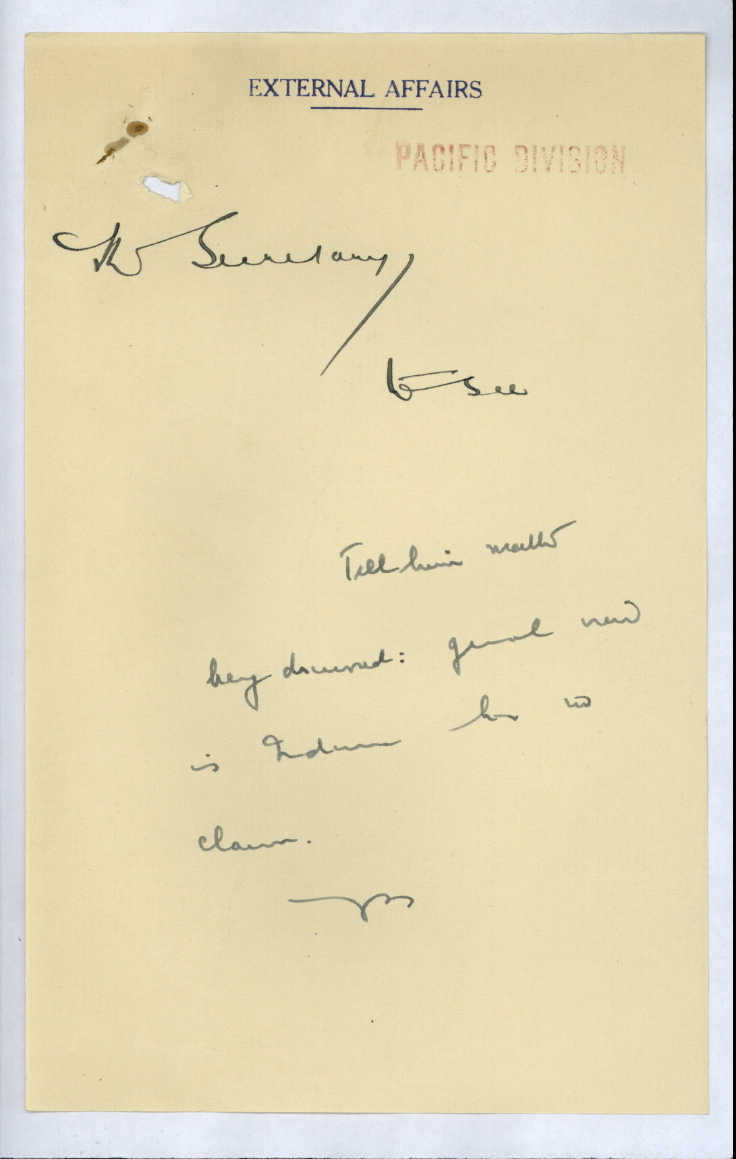 EXTERNAL AFFAIRS
PACIFIC DIVISION
The Secretary
to see
Tell him matter
being discussed: general view
is Indonesia has no
claim.